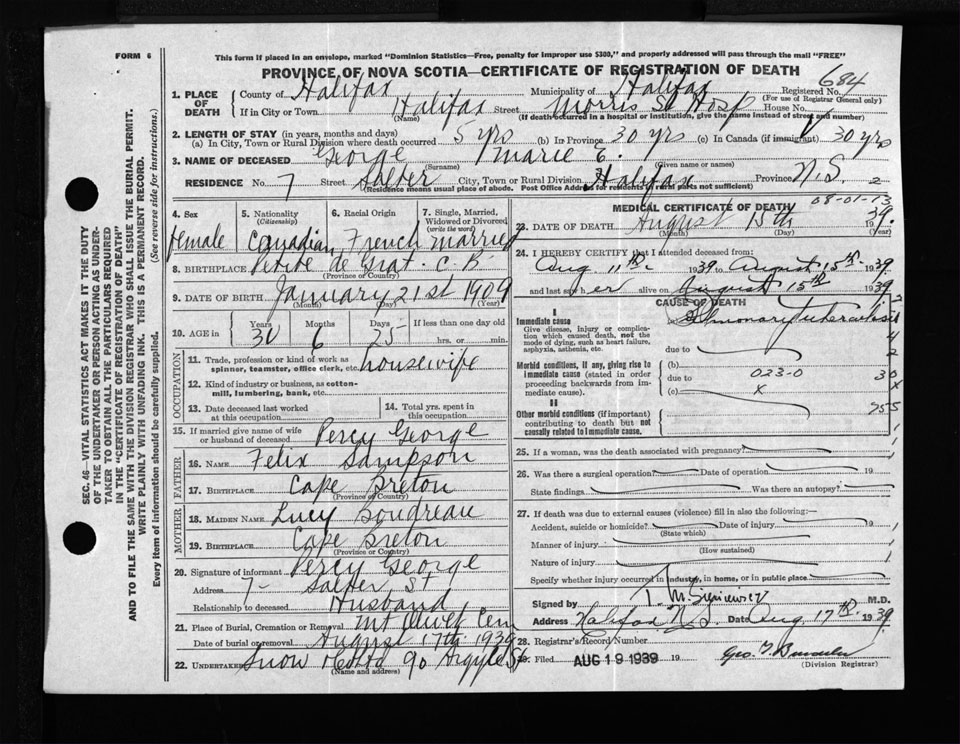 FORM 6
This form if placed in an envelope, marked "Dominion Statistics—Free, penalty for improper use $300," and properly addressed will pass through the mail "FREE"
PROVINCE OF NOVA SCOTIA—CERTIFICATE OF REGISTRATION OF DEATH
684
1. PLACE OF DEATH County of Halifax Municipality of Halifax Registered No.
(For use of Registrar General only)
If in City or Town Halifax Street Morris St Hosp House No.
(Name) (If death occurred in a hospital or institution, give the name instead of street and number)
2. LENGTH OF STAY (in years, months and days)
(a) In City, Town or Rural Division where death occurred 5 yrs (b) In Province 30 yrs (c) In Canada (if immigrant) 30 yrs
3. NAME OF DECEASED George Marie E.
(Surname) (Given name or names)
RESIDENCE No. 7 Street Salter City, Town or Rural Division Halifax Province N.S. 2
(Residence means usual place of abode. Post Office Address for residents of rural parts not sufficient)
4. Sex female
5. Nationality (Citizenship) Canadian
6. Racial Origin French
7. Single, Married, Widowed or Divorced (write the word) married
8. BIRTHPLACE Petite de Grat. C.B.
9. DATE OF BIRTH January 21st 1909
(Month) (Day) (Year)
10. AGE in Years 30 Months 6 Days 25 If less than one day old hrs. or min.
OCCUPATION
11. Trade, profession or kind of work as spinner, teamster, office clerk, etc. housewife
12. Kind of industry or business, as cotton-mill, lumbering, bank, etc.
13. Date deceased last worked at this occupation
14. Total yrs. spent in this occupation
15. If married give name of wife or husband of deceased Percy George
FATHER
16. NAME Felix Sampson
17. BIRTHPLACE Cape Breton
(Province or Country)
MOTHER
18. MAIDEN NAME Lucy Boudreau
19. BIRTHPLACE Cape Breton
(Province or Country)
20. Signature of informant Percy George
Address 7- Salter St
Relationship to deceased Husband
21. Place of Burial, Cremation or Removal Mt Olivet Cem
Date of burial or removal August 17th 1939
22. UNDERTAKER Snow & Co Ltd 90 Argyle St
(Name and address)
MEDICAL CERTIFICATE OF DEATH
08-01-13
23. DATE OF DEATH August 15th 1939
(Month) (Day) (Year)
24. I HEREBY CERTIFY that I attended deceased from:
Aug 11th 1939 to August 15th 1939
and last saw her alive on August 15th 1939
CAUSE OF DEATH
I
Immediate cause
Give disease, injury or complication which caused death, not the mode of dying, such as heart failure, asphyxia, asthenia, etc.
Pulmonary tuberculosis
due to
Morbid conditions, if any, giving rise to immediate cause (stated in order proceeding backwards from immediate cause)
(b)
due to 023-0
(c) x
30
x
755
II
Other morbid conditions (if important) contributing to death but not causally related to immediate cause.
25. If a woman, was the death associated with pregnancy?
26. Was there a surgical operation? Date of operation 19
State findings Was there an autopsy?
27. If death was due to external causes (violence) fill in also the following:—
Accident, suicide or homicide? Date of injury 19
(State which)
Manner of injury
(How sustained)
Nature of injury
Specify whether injury occurred in industry, in home, or in public place
Signed by M.D.
Address Halifax N.S. Date Aug 17th 1939
28. Registrar's Record Number
29. Filed AUG 19 1939 19
(Division Registrar)
SEC. 46—VITAL STATISTICS ACT MAKES IT THE DUTY
OF THE UNDERTAKER OR PERSON ACTING AS UNDERTAKER TO OBTAIN ALL THE PARTICULARS REQUIRED
IN THE "CERTIFICATE OF REGISTRATION OF DEATH"
AND TO FILE THE SAME WITH THE DIVISION REGISTRAR WHO SHALL ISSUE THE BURIAL PERMIT.
WRITE PLAINLY WITH UNFADING INK. THIS IS A PERMANENT RECORD.
Every item of information should be carefully supplied. (See reverse side for instructions.)